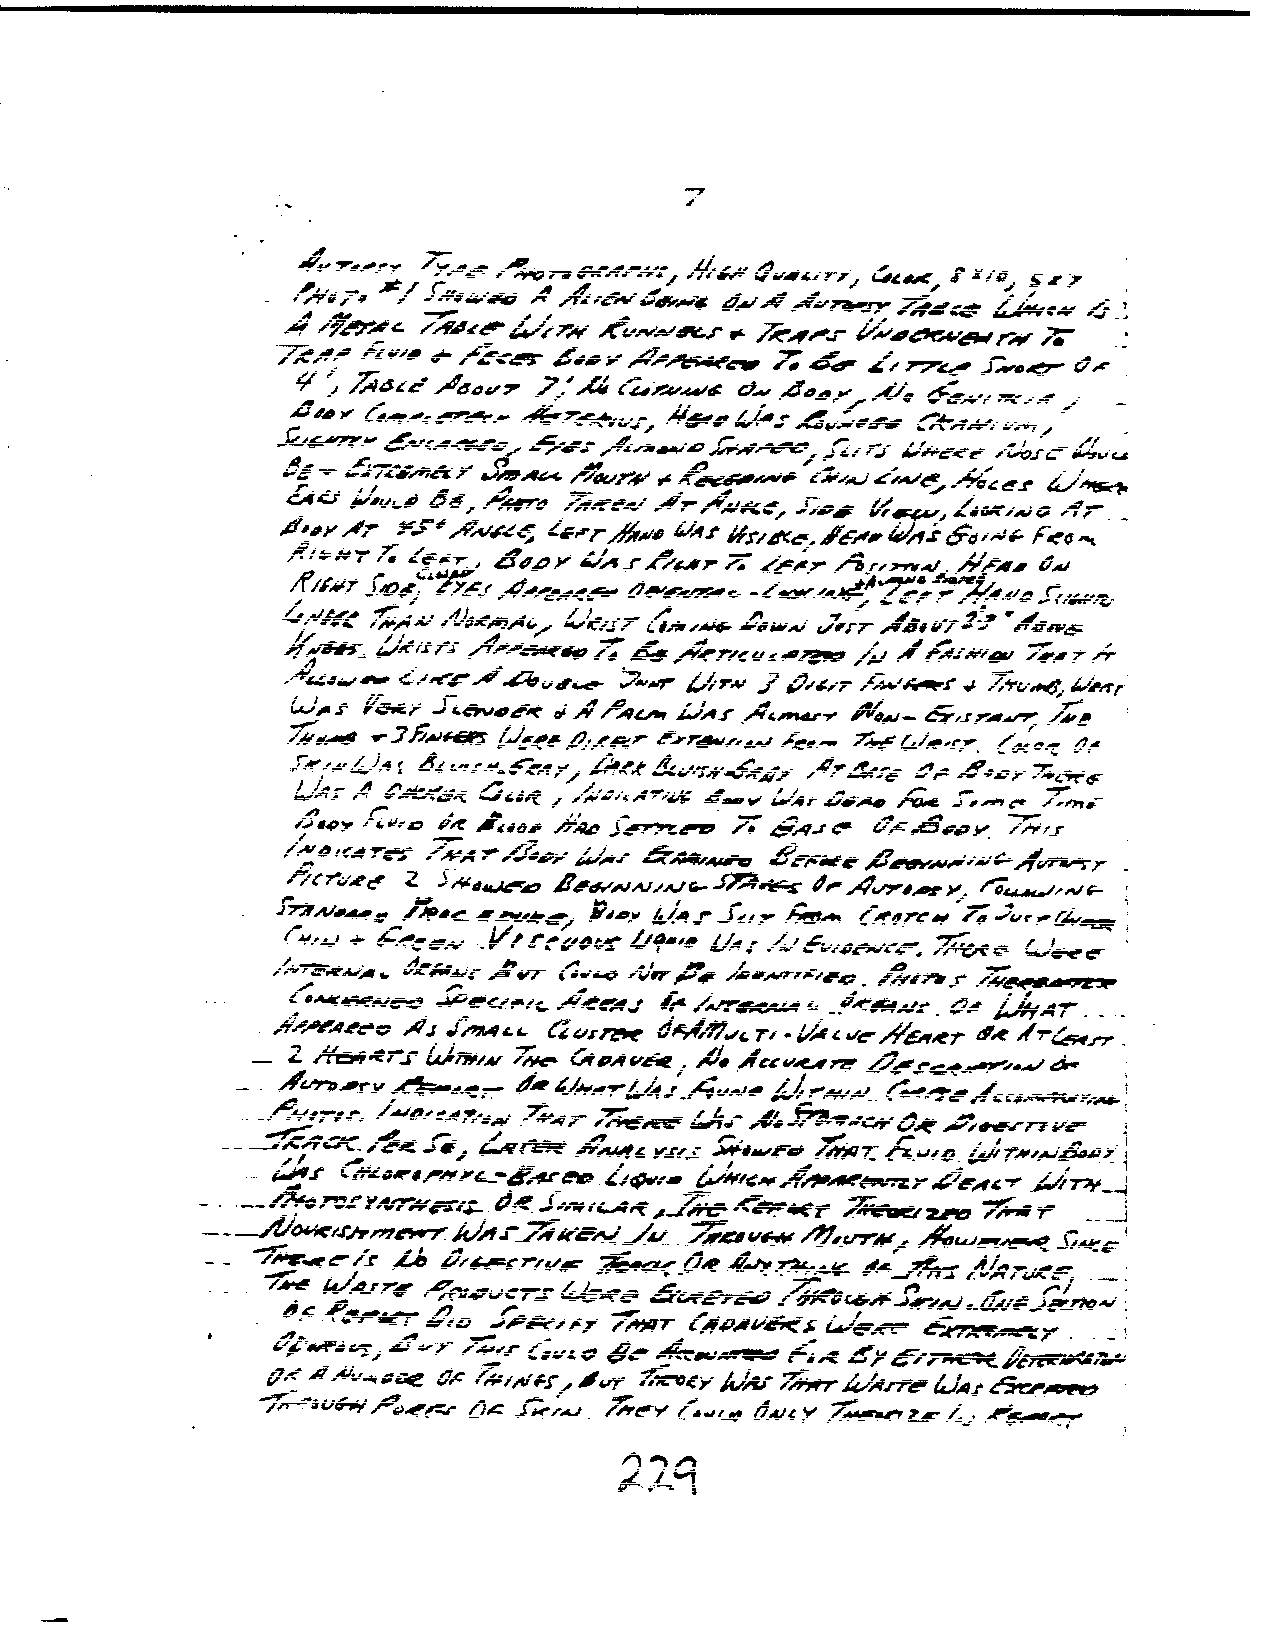 7
AUTOPSY TYPE PHOTOGRAPHS, HIGH QUALITY, COLOR, 8 X 10, 5 X 7
PHOTO #1 SHOWED A ALIEN BEING ON A AUTOPSY TABLE WHICH IS
A METAL TABLE WITH RUNNELS + TRAPS UNDERNEATH TO
TRAP FLUID + FECES BODY APPEARED TO BE LITTLE SHORT OF
4', TABLE ABOUT 7', NO CLOTHING ON BODY, NO GENITALIA,
BODY COMPLETELY HETEROUS, HEAD WAS ROUNDED CRANIUM,
SLIGHTLY ENLARGED, EYES ALMOND SHAPED, SLITS WHERE NOSE WOULD
BE + EXTREMELY SMALL MOUTH + RECEDING CHIN LINE, HOLES WHERE
EARS WOULD BE, PHOTO TAKEN AT ANGLE, SIDE VIEW, LOOKING AT
BODY AT 45° ANGLE, LEFT HAND WAS VISIBLE, HEAD WAS GOING FROM
RIGHT TO LEFT, BODY WAS RIGHT TO LEFT POSITION, HEAD ON
RIGHT SIDE, CLOSED EYES APPEARED ORIENTAL-LOOKING + ALMOND SHAPED, LEFT HAND SLIGHTLY
LONGER THAN NORMAL, WRIST COMING DOWN JUST ABOUT 2-3" ABOVE
KNEES. WRISTS APPEARED TO BE ARTICULATED IN A FASHION THAT
ALLOWED LIKE A DOUBLE JOINT WITH 3 DIGIT FINGERS + THUMB, WRIST
WAS VERY SLENDER + A PALM WAS ALMOST NON-EXISTANT, THE
THUMB + 3 FINGERS WERE DIRECT EXTENSION FROM THE WRIST. COLOR OF
SKIN WAS BLUISH-GRAY, DARK BLUISH-GRAY AT BASE OF BODY THERE
WAS A DARKER COLOR, INDICATIVE BODY WAS DEAD FOR SOME TIME
BODY FLUID OR BLOOD HAD SETTLED TO BASE OF BODY. THIS
INDICATES THAT BODY WAS EXAMINED BEFORE BEGINNING AUTOPSY
PICTURE 2 SHOWED BEGINNING STAGES OF AUTOPSY, FOLLOWING
STANDARD PROCEDURE, BODY WAS SLIT FROM CROTCH TO JUST UNDER
CHIN + GREEN VISCUOUS LIQUID WAS IN EVIDENCE. THERE WERE
INTERNAL ORGANS BUT COULD NOT BE IDENTIFIED. PHOTOS THEREAFTER
CONCERNED SPECIFIC AREAS OF INTERNAL ORGANS OF WHAT
APPEARED AS SMALL CLUSTER OF A MULTI-VALVE HEART OR AT LEAST
2 HEARTS WITHIN THE CADAVER, NO ACCURATE DESCRIPTION OF
AUTOPSY REPORT OR WHAT WAS FOUND WITHIN CORPSE ACCOMPANYING
PHOTOS. INDICATION THAT THERE WAS NO STOMACH OR DIGESTIVE
TRACK PER SE, LATER ANALYSIS SHOWED THAT FLUID WITHIN BODY
WAS CHLOROPHYL-BASED LIQUID WHICH APPARENTLY DEALT WITH
PHOTOSYNTHESIS OR SIMILAR, THE REPORT THEORIZED THAT
NOURISHMENT WAS TAKEN IN THROUGH MOUTH, HOWEVER SINCE
THERE IS NO DIGESTIVE TRACK OR ANYTHING OF THIS NATURE,
THE WASTE PRODUCTS WERE EXCRETED THROUGH SKIN. ONE SECTION
OF REPORT DID SPECIFY THAT CADAVERS WERE EXTREMELY
ODOROUS, BUT THIS COULD BE ACCOUNTED FOR BY EITHER DETERIORATION
OR A NUMBER OF THINGS, BUT THEORY WAS THAT WASTE WAS EXCRETED
THROUGH PORES OF SKIN. THEY COULD ONLY THEORIZE IN REPORT
229